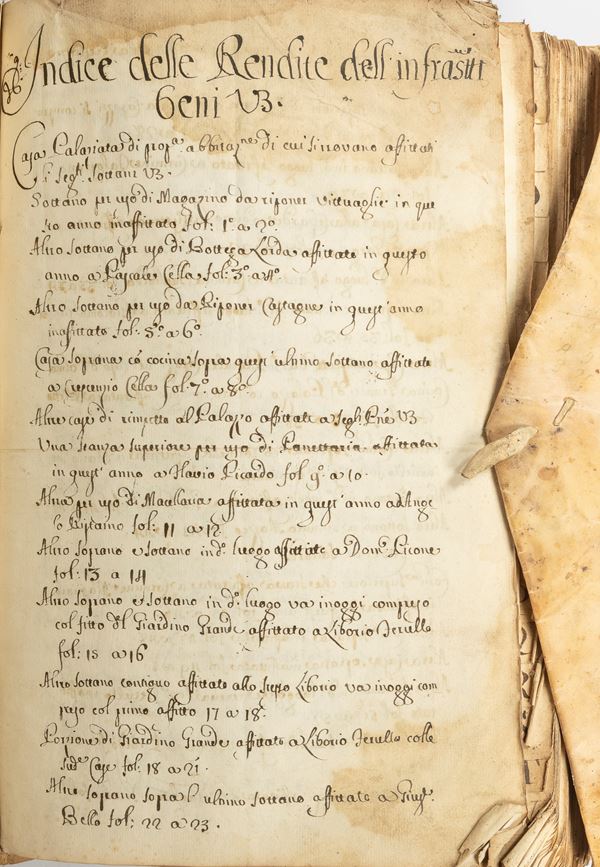 Indice delle Rendite dell'infra:tti
beni V3.
Casa Palaziata di prop:a abbitaz:ne di cui si trovano affittati
li segti Sottani V3.
Sottano per uso di Magazino da riponer vittuaglie in que
sto anno inaffittato fol: 1º a 2º.
Altro sottano per uso di Bottega Lorda affittato in questo
anno a Pascale Cella fol: 3º a 4º.
Altro sottano per uso da Riponer Castagne in quest'anno
inafittato fol: 5º a 6º.
Casa soprana có cocina sopra quest'ultimo sottano affittata
a Crescenzio Cella fol: 7º a 8º.
Altre case di rimpetto al Palazzo affittate a segti V3
Una stanza superiore per uso di Panettaria affittata
in quest'anno a Flavio Picardo fol 9º a 10.
Altra per uso di affittata in quest'anno ad Ange
lo fol: 11 a 12
Altro soprano e sottano in d:º luogo affittato a Dom:co
fol: 13 a 14
Altro soprano e sottano in d:º luogo va in oggi compreso
col fitto del Giardino Grande affittato a Liborio
fol: 15 a 16
Altro sottano contiguo affittato allo stesso Liborio va in oggi com
preso col primo affitto 17 a 18.
Porzione di Giardino Grande affittato a Liborio colle
sud:e Case fol: 18 a 21.
Altro soprano sopra l'ultimo sottano affittato a Gius:e
Bello fol: 22 a 23.